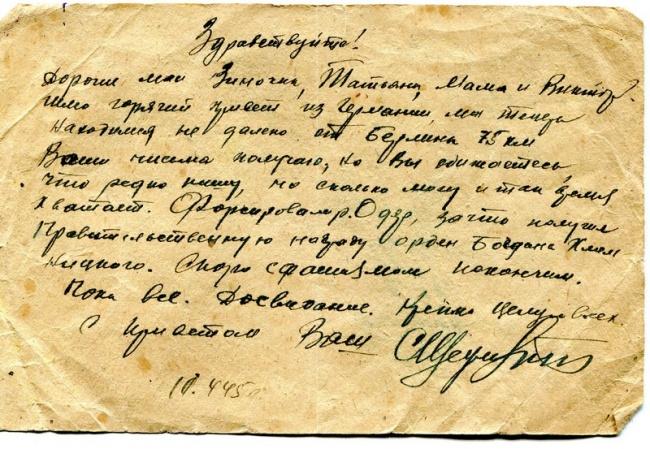 Здравствуйте!
Дорогие мои Зиночка, Татьяна, Мама и Виктор.
Шлю горячий привет из Германии, мы теперь
находимся не далеко от Берлина 75 км
Ваши письма получаю, но Вы обижаетесь,
что редко пишу, но сколько могу и так время
хватает. Форсировали р. Одер, за что получил
Правительственную награду орден Богдана Хмель
ницкого. Скоро с фашизмом покончим.
Пока все. Досвидание. Крепко целую всех.
С приветом Ваш